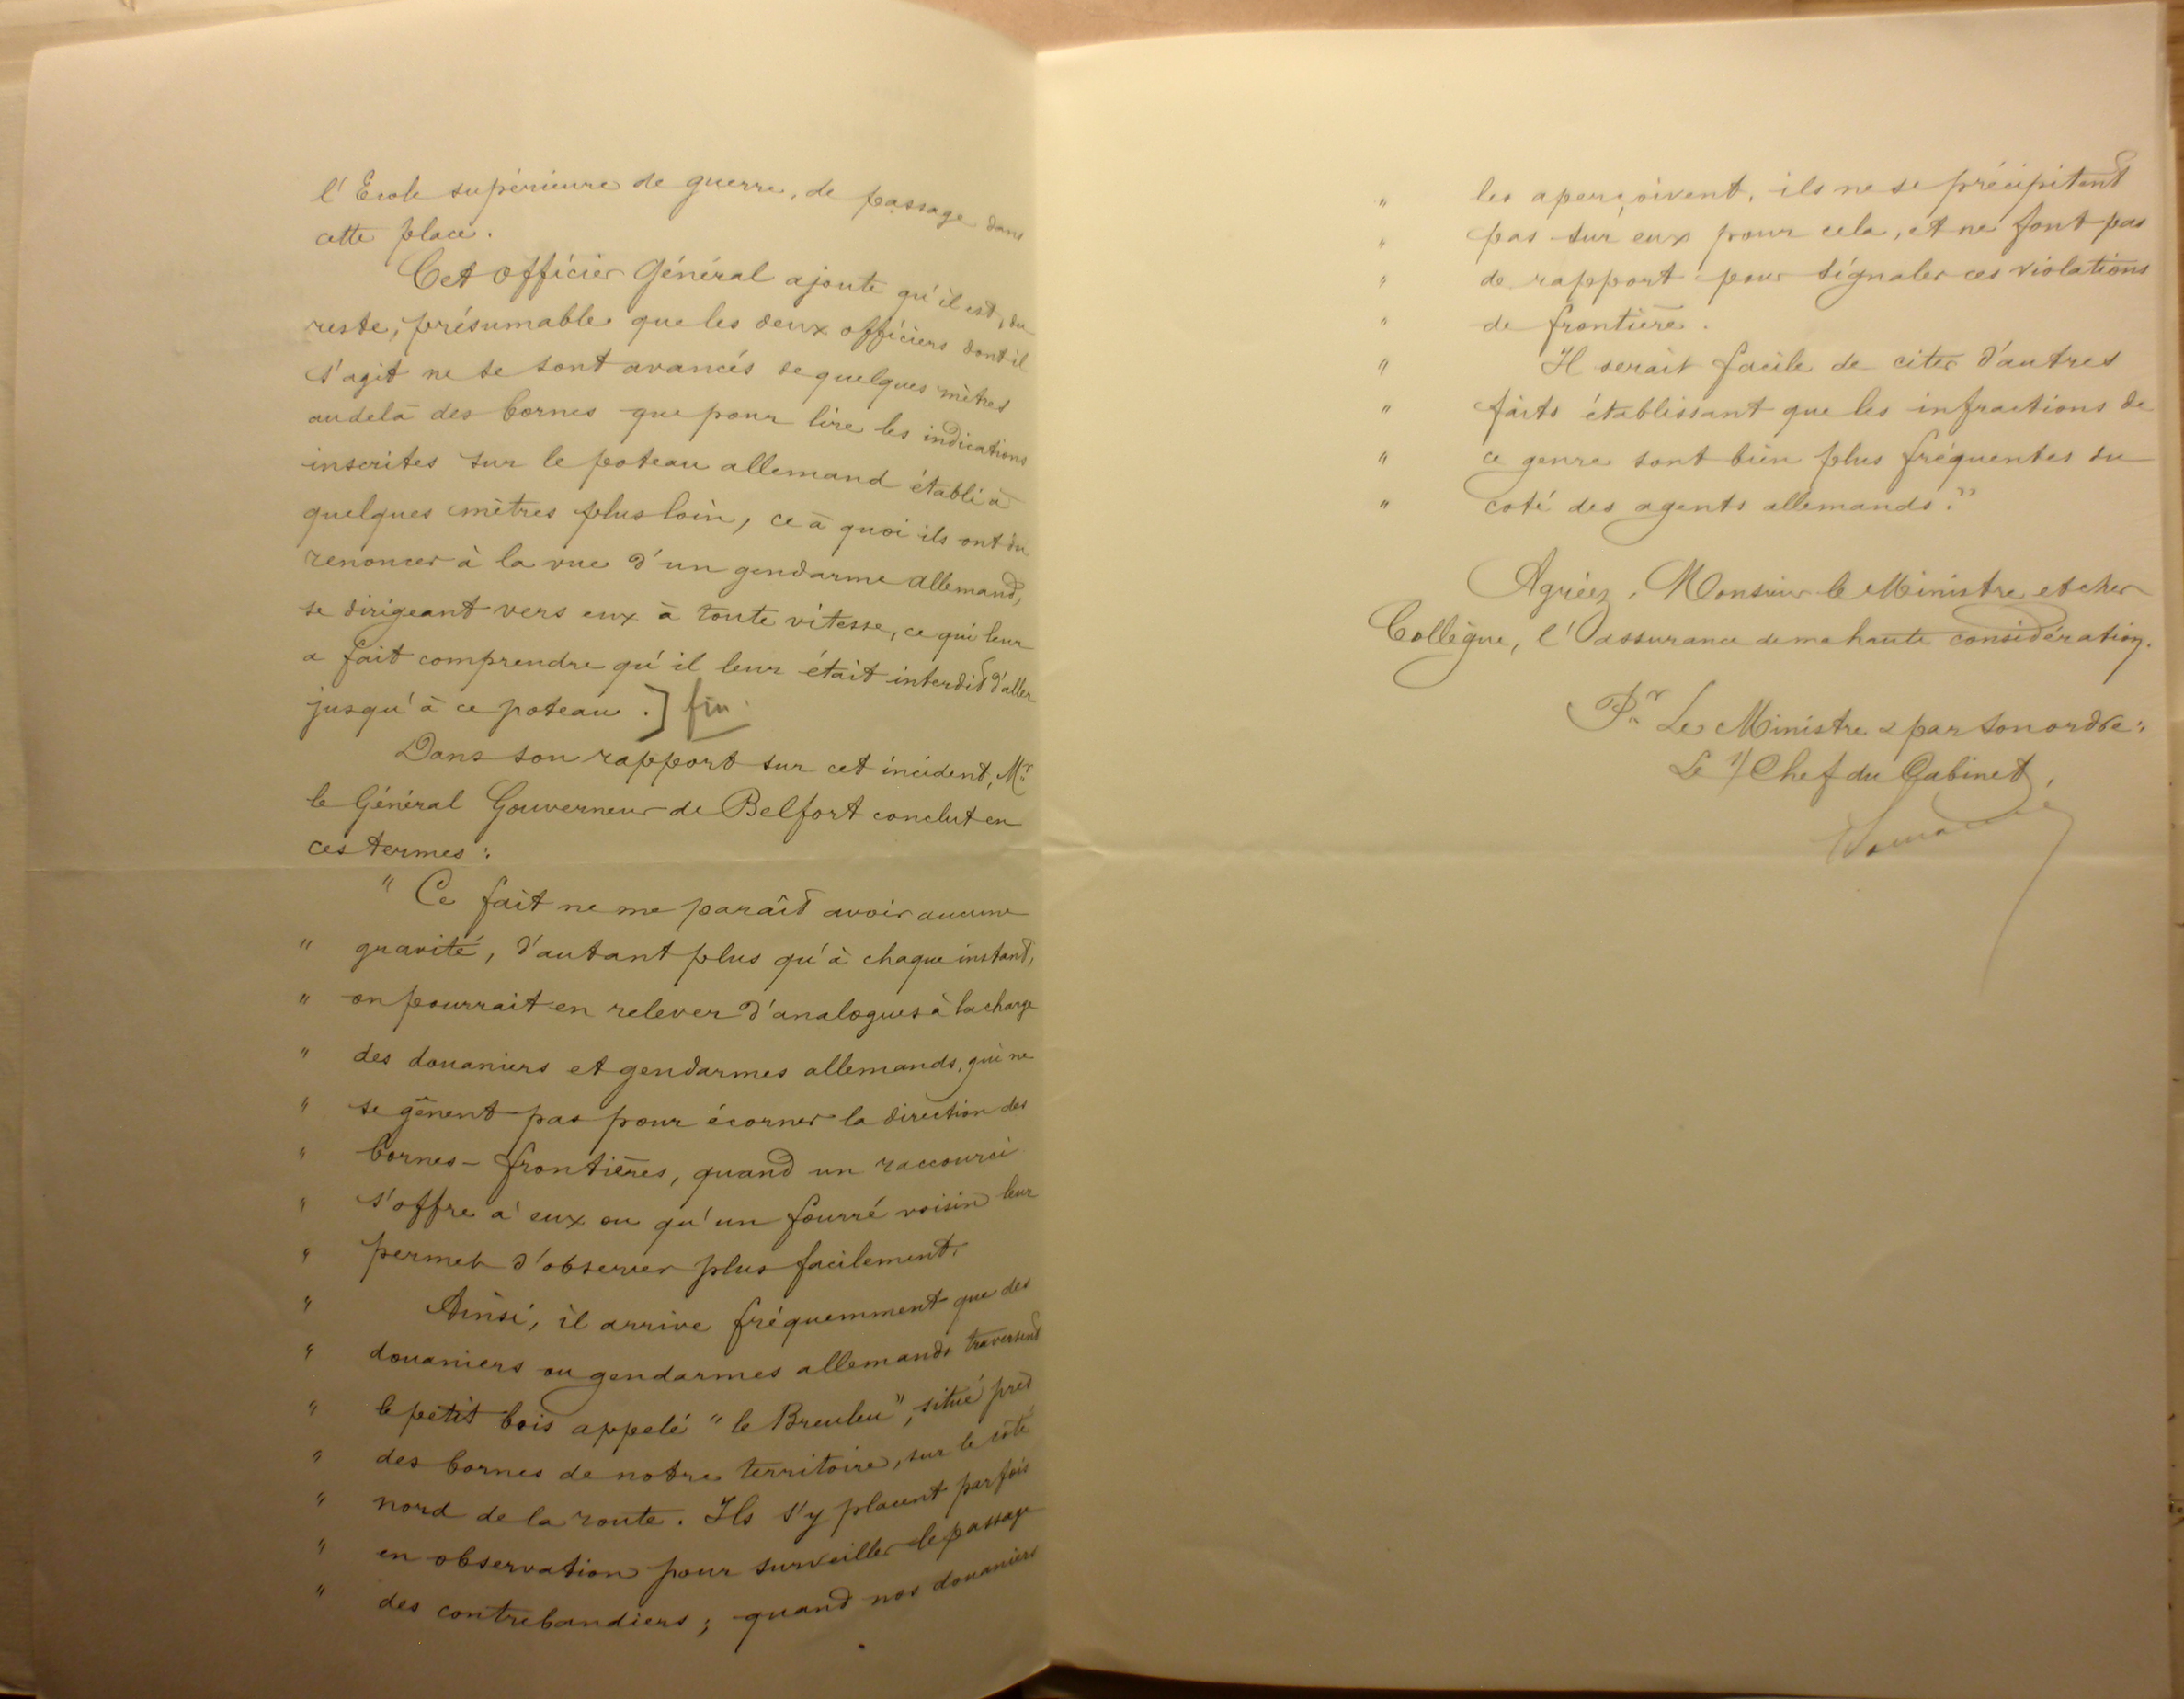 l'École supérieure de guerre, de passage dans
cette place.
Cet officier Général ajoute qu'il est, du
reste, présumable que les deux officiers dont il
s'agit ne se sont avancés de quelques mètres
au delà des bornes que pour lire les indications
inscrites sur le poteau allemand établi à
quelques mètres plus loin, ce à quoi ils ont du
renoncer à la vue d'un gendarme allemand,
se dirigeant vers eux à toute vitesse, ce qui leur
a fait comprendre qu'il leur était interdit d'aller
jusqu'à ce poteau .] fin.
Dans son rapport sur cet incident, Mr
le Général Gouverneur de Belfort conclut en
ces termes :
" Ce fait ne me paraît avoir aucune
" gravité, d'autant plus qu'à chaque instant,
" on pourrait en relever d'analogues à la charge
" des douaniers et gendarmes allemands, qui ne
" se gênent pas pour écorner la direction des
" bornes-frontières, quand un raccourci
" s'offre à eux ou qu'un fourré voisin leur
" permet d'observer plus facilement.
" Ainsi, il arrive fréquemment que des
" douaniers ou gendarmes allemands traversent
" le petit bois appelé "le Breuleu", situé près
" des bornes de notre territoire, sur le côté
" nord de la route. Ils s'y placent parfois
" en observation pour surveiller le passage
" des contrebandiers ; quand nos douaniers
" les aperçoivent, ils ne se précipitent
" pas sur eux pour cela, et ne font pas
" de rapport pour signaler ces violations
" de frontière.
" Il serait facile de citer d'autres
" faits établissant que les infractions de
" ce genre sont bien plus fréquentes du
" coté des agents allemands."
Agréez, Monsieur le Ministre et cher
Collègue, l'assurance de ma haute considération.
Pr Le Ministre & par son ordre :
Le S/ Chef du Cabinet,